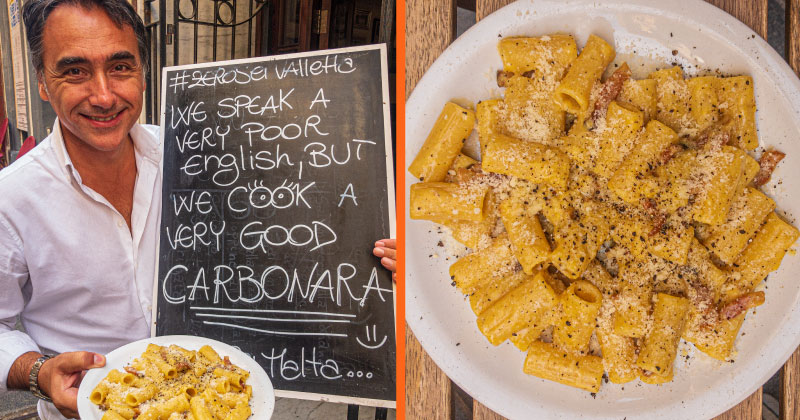 #ZEROSEI VALLETTA
WE SPEAK A
VERY POOR
English, BUT
WE COOK A
VERY GOOD
CARBONARA
Malta...